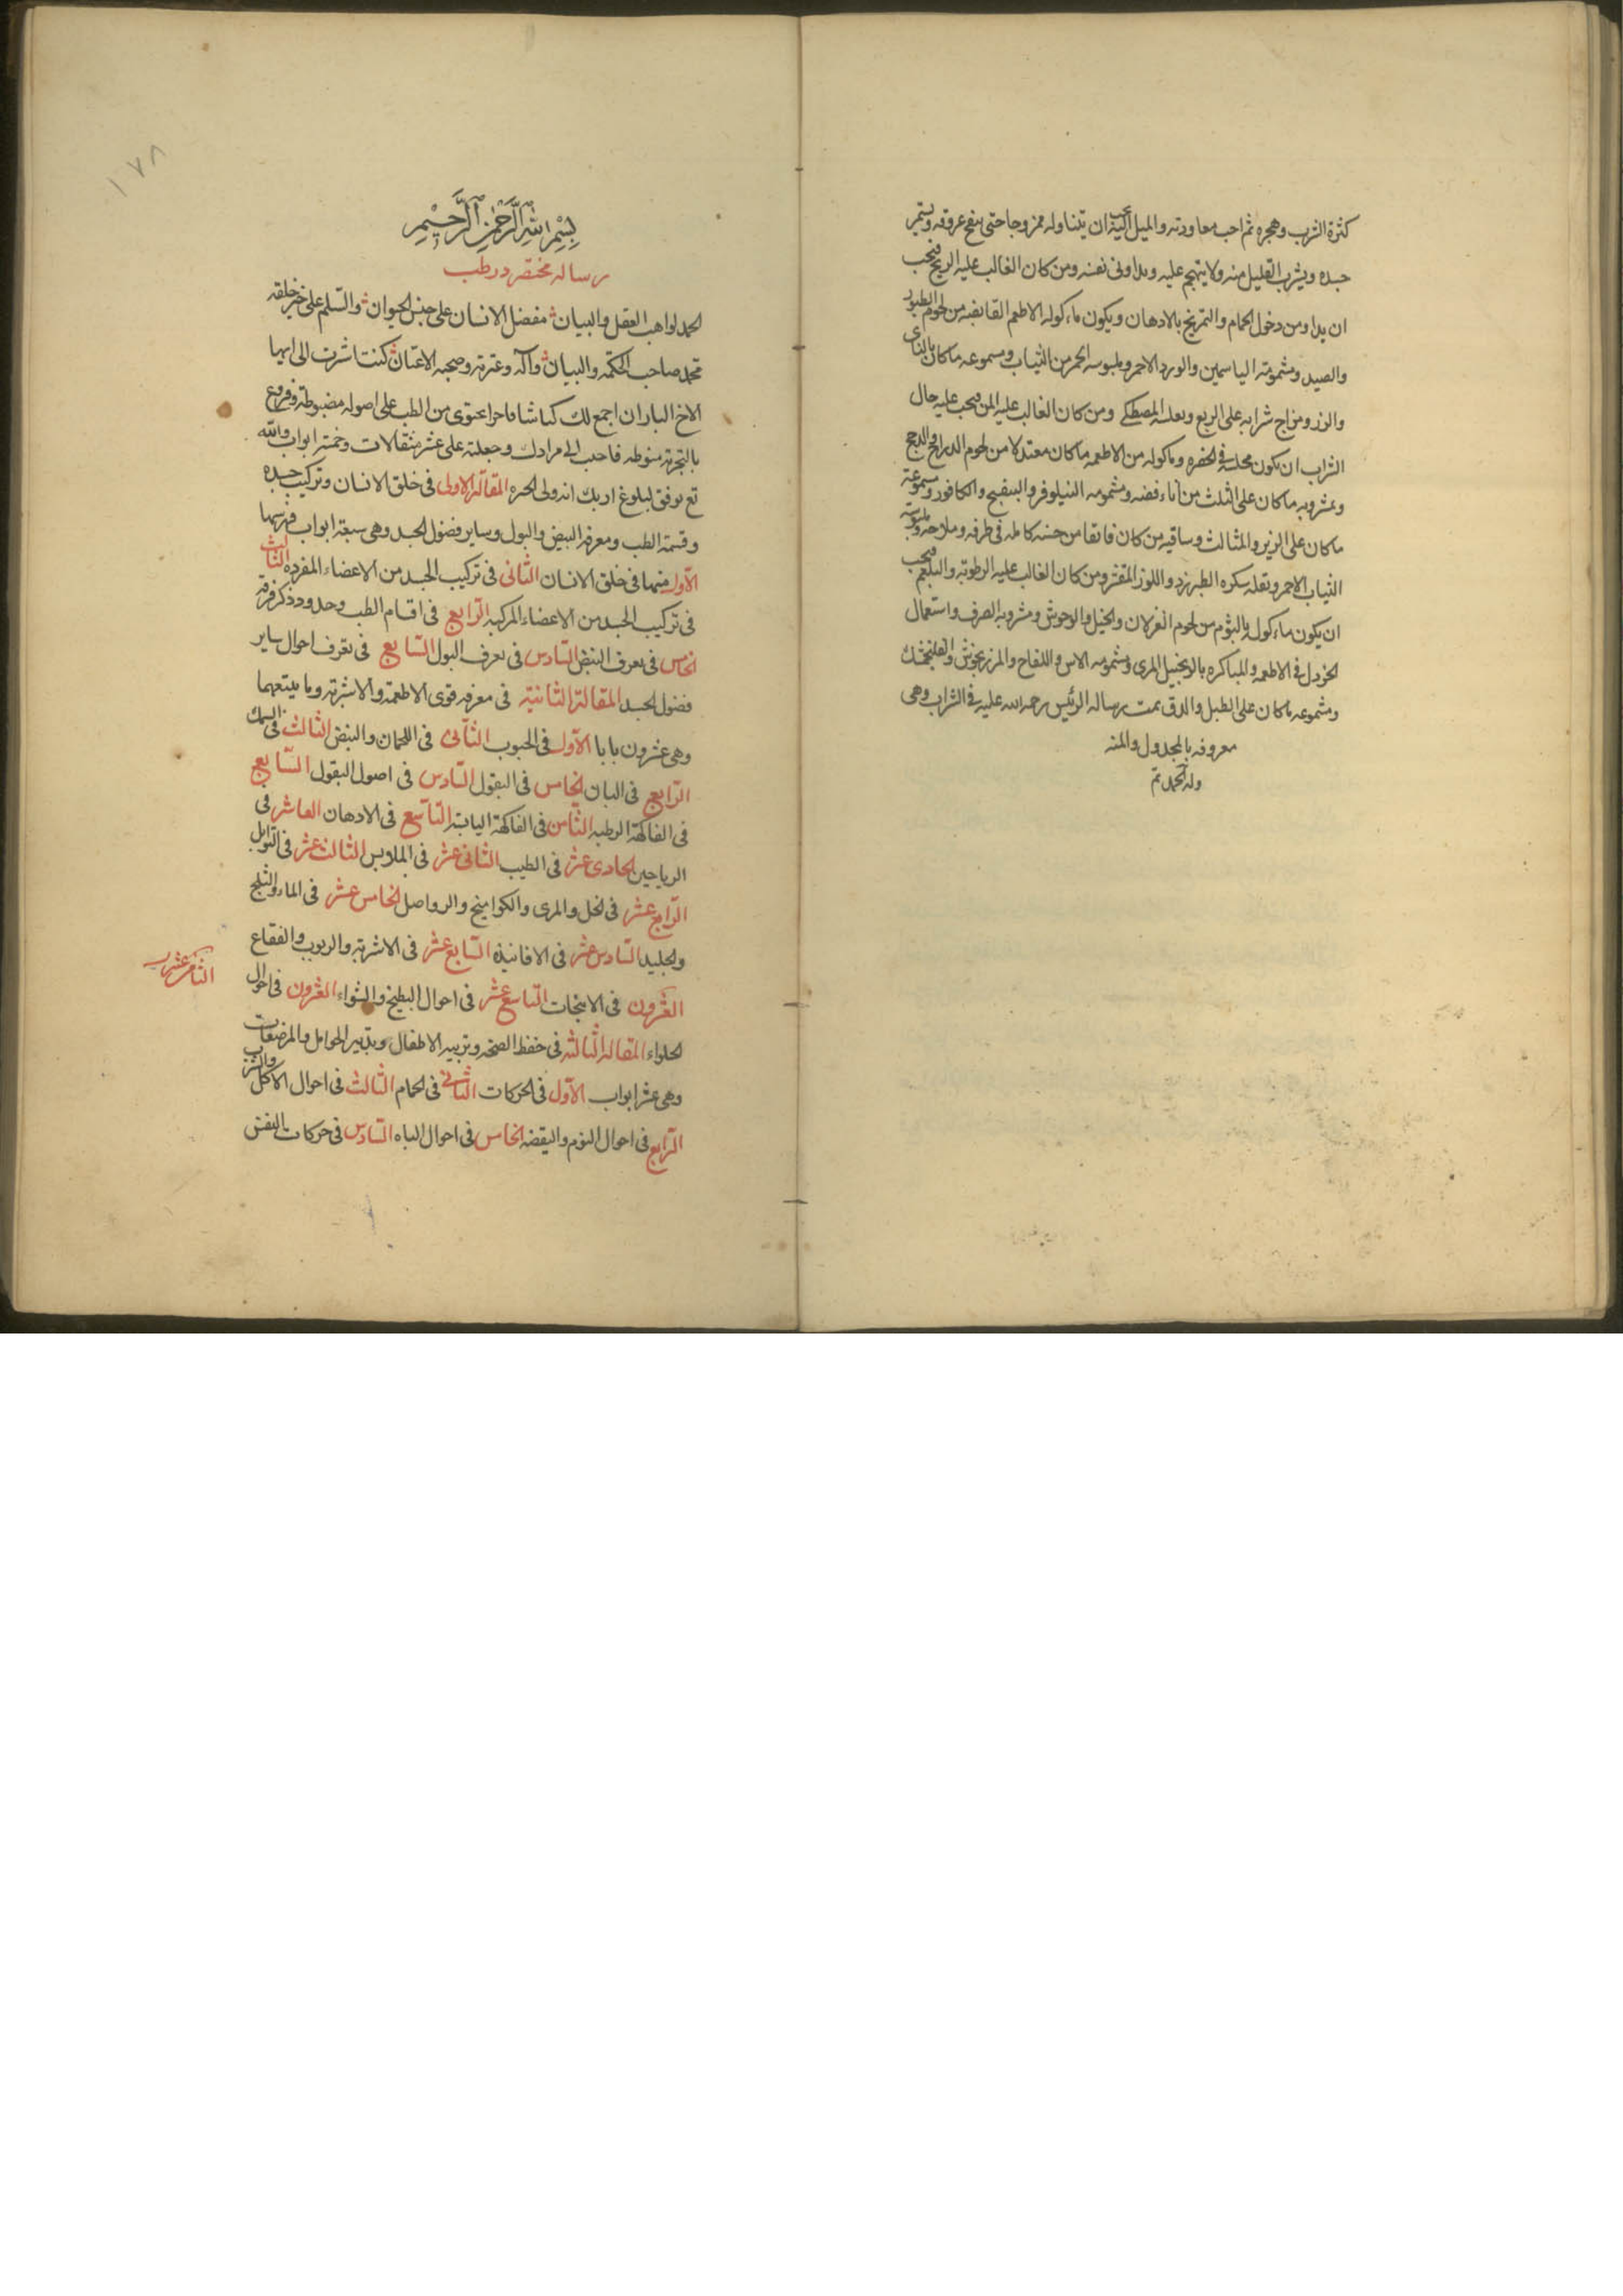 كثرة الشرب وهجره ثم احب معاودته والميل اليه يجب ان يتناوله ممزوجا حتى ينفح عروقه ويستمر
جسده ويشرب القليل منه ولا يتهجم عليه ويداوى نفسه ومن كان الغالب عليه الريح فيجب
ان يداومن دخول الحمام والتمريخ بالادهان ويكون ماءكوله الاطعم القابضه من لحوم الطيور
والصيد ومشمومه الياسمين والورد الاحمر وملبوسه الحمر من الثياب ومسموعه ما كان بالناى
والزر ومزاج شرابه على الربع وبعده المصطكى ومن كان الغالب عليه المن فيجب عليه حال
الشراب ان يكون مجلسه فى الخضره وماكوله من الاطعمه ما كان معتدلا من لحوم الدراج والدجج
ومشروبه ما كان على الثلث من اناء فضه ومشمومه النيلوفر والبنفسج والكافور ومسموعه
ما كان على الزير والمثالث وساقيه من كان فايقا من حسنه كامله فى ظرفه وملاحه وملبوسه
الثياب الاحمر ونقله سكره الطبرزد واللوز المقشر ومن كان الغالب عليه الرطوبه والبلغم فيجب
ان يكون ماءكوله بالثوم من لحوم الغزلان والخيل والوحوش ومشروبه الصرف واستعمال
الخردل فى الاطعمه والمباكره بالزنجبيل المربى ومشمومه الاس واللفاح والمرزنجوش والفلنجمشك
ومشموعه ما كان على الطبل والدق تمت رساله الرئيس رحمه الله عليه فى الشراب وهى
معروفه بالمجدول والمنه
وله الحمد تم
١٧٨
بسم الله الرحمن الرحيم
رساله مختصر در طب
الحمد لواهب العقل والبيان مفضل الانسان على جنس الحيوان والسلم على خير خلقه
محمد صاحب الحكمه والبيان وآله وعترته وصحبه الاعيان كنت اشرت الى ايها
الاخ البار ان اجمع لك كناشا فاخرا يحتوى من الطب على اصوله مضبوطة وفروع
بالتجربه منوطه فاجب الى مرادك وجعلته على عشر مقالات وخمسه ابواب والله
تع يوفق لبلوغ اربك انه ولى الخيره المقالة الاولى فى خلق الانسان وتركيب جسده
وقسمة الطب ومعرفه النبض والبول وساير فضول الجسد وهى سبعة ابواب فهرسها
الاول منها فى خلق الانسان الثانى فى تركيب الجسد من الاعضاء المفرده الثالث
فى تركيب الجسد من الاعضاء المركبه الرابع فى اقسام الطب وحدود ذكر فرقه
الخامس فى تعرف النبض السادس فى تعرف البول السابع فى تعرف احوال ساير
فضول الجسد المقالة الثانية فى معرفه قوى الاطعمة والاشربه وما يتبعهما
وهى عشرون بابا الاول فى الحبوب الثانى فى اللحمان والبيض الثالث فى السمك
الرابع فى البان الخامس فى البقول السادس فى اصول البقول السابع
فى الفاكهة الرطبه الثامن فى الفاكهة اليابسه التاسع فى الادهان العاشر فى
الرياحين الحادى عشر فى الطيب الثانى عشر فى الملابس الثالث عشر فى التوابل
الرابع عشر فى الخل والمرى والكوامخ والرواصل الخامس عشر فى الماء والثلج
والجليد السادس عشر فى الافانيذه السابع عشر فى الاشربه والربوب والفقاع
الثامن عشر
العشرون فى الانبجات التاسع عشر فى احوال البطيخ والشواء العشرون فى احوال
الحلواء المقاله الثالثه فى حفظ الصحه وتربيه الاطفال وتدبير الحوامل والمرضعات
وهى عشر ابواب الاول فى الحركات الثانى فى الحمام الثالث فى احوال الاكل والشرب
الرابع فى احوال النوم واليقضه الخامس فى احوال الباه السادس فى حركات النفس